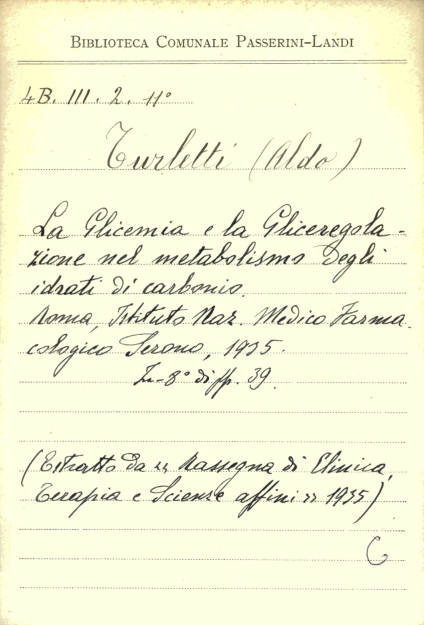 BIBLIOTECA COMUNALE PASSERINI-LANDI
4B. III. 2. 11°
Turletti (Aldo)
La Glicemia e la Gliceregola-
zione nel metabolismo degli
idrati di carbonio.
Roma, Istituto Naz. Medico Farma.
cologico Serono, 1935.
In-8° di pp. 39.
(Estratto da "Rassegna di Clinica,
Terapia e Scienze affini" 1935)